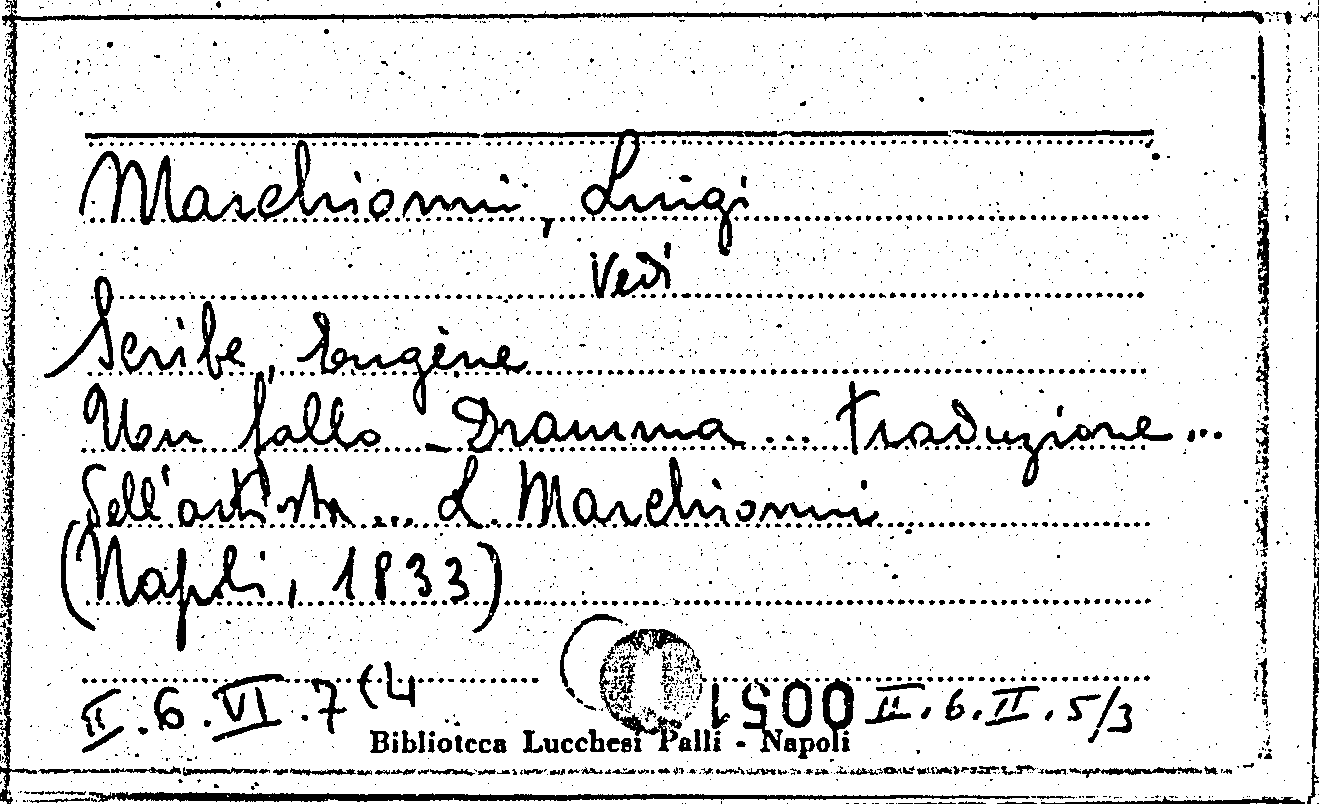 Marchionni, Luigi
Vedi
Scribe, Eugène
Un fallo - Dramma ... traduzione ...
dell'artista ... L. Marchionni
(Napoli, 1833)
II.6.VI.7(4
II.6.II.5/3
Biblioteca Lucchesi Palli - Napoli